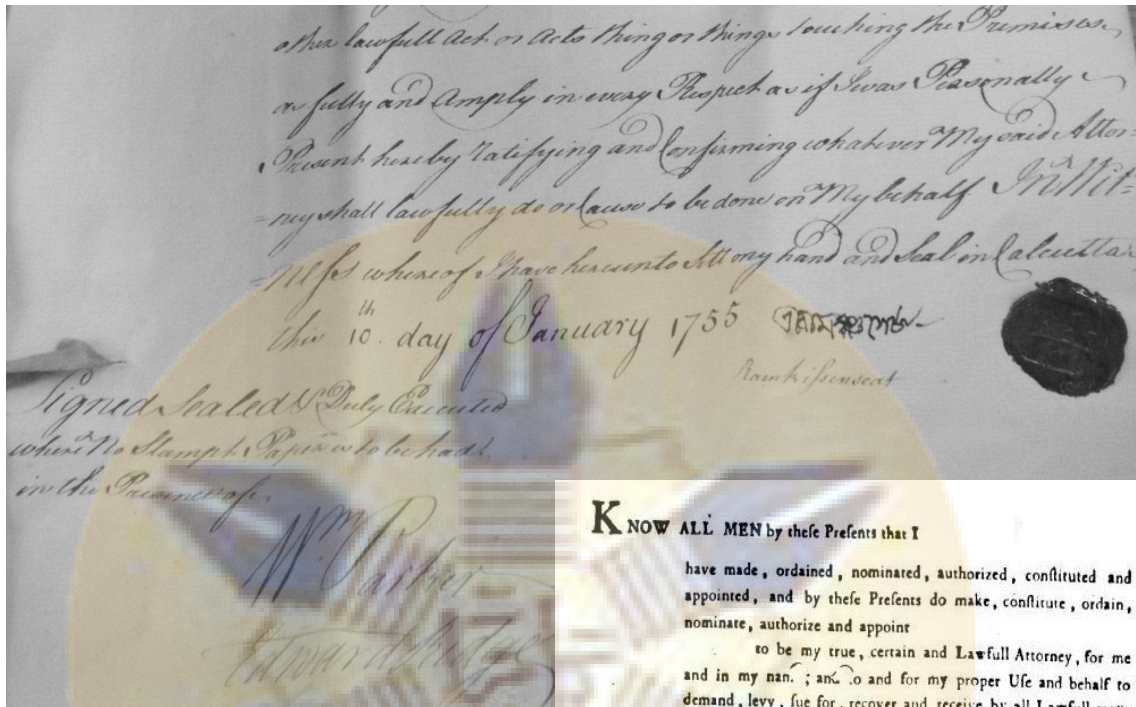 other lawfull Act or Acts thing or things touching the Premisses
as fully and Amply in every Respect as if I was Personally
Present hereby ratifying and Confirming whatever My said Attor=
=ney shall lawfully do or Cause to be done on My behalf In Wit=
=ness whereof I have hereunto Sett my hand and Seal in Calcutta
this 10th. day of January 1755
Ramkissenseat
Signed Sealed & Duly Executed
where No Stampt Paper is to be had
in the Presence of
Wm Parker
Edward
KNOW ALL MEN by theſe Preſents that I
have made, ordained, nominated, authorized, conſtituted and
appointed, and by theſe Preſents do make, conſtitute, ordain,
nominate, authorize and appoint
to be my true, certain and Lawfull Attorney, for me
and in my ; and for my proper Uſe and behalf to
demand, levy, ſue for, recover and receive by all Lawfull